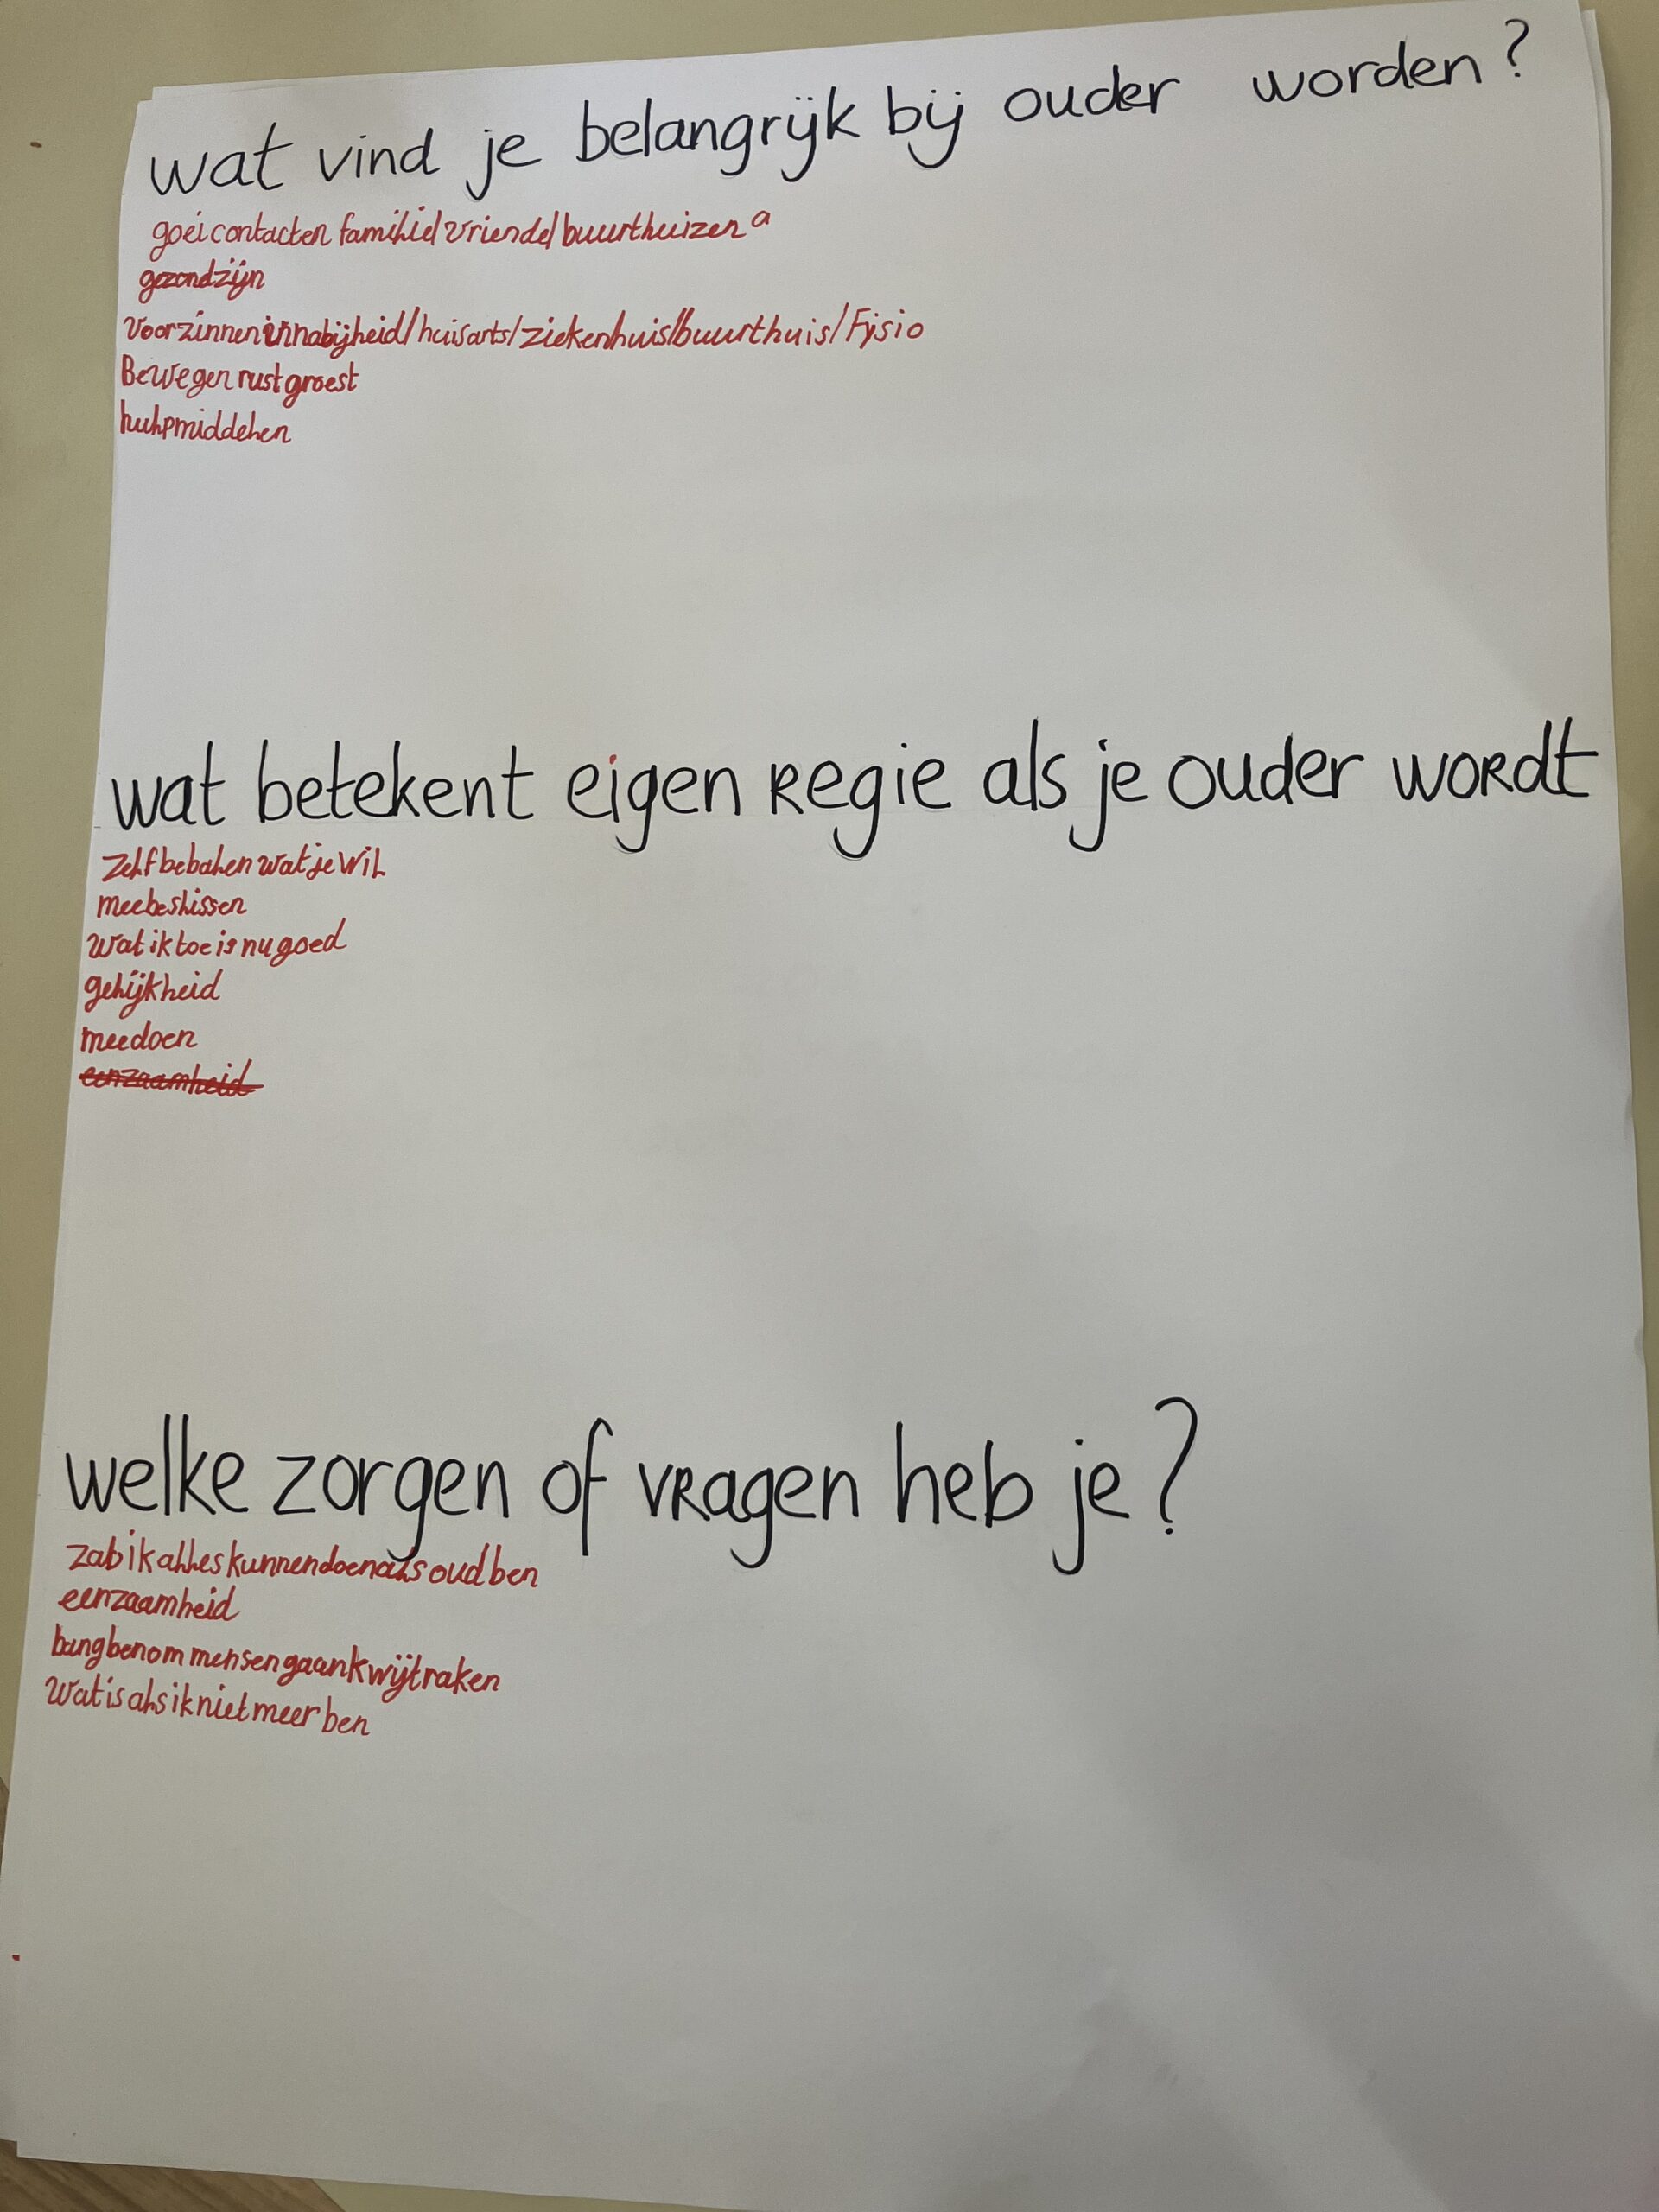 wat vind je belangrijk bij ouder worden?
goei contacten familie/vriende/buurthuizen a
gezond zijn
Voorzinnen in nabijheid/huisarts/ziekenhuis/buurthuis/Fysio
Bewegen rust groest
hulpmiddelen
wat betekent eigen Regie als je ouder wordt
Zelf bebalen wat je wil
meebeslissen
Wat ik toe is nu goed
gelijkheid
meedoen
eenzaamheid
welke zorgen of vragen heb je?
zal ik alles kunnen doen als oud ben
eenzaamheid
bang ben om mensen gaan kwijtraken
Wat is als ik niet meer ben